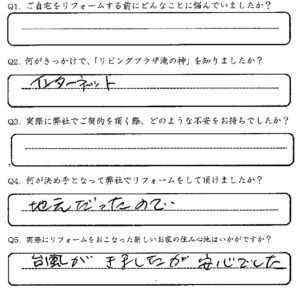 Q1. ご自宅をリフォームする前にどんなことに悩んでいましたか？
Q2. 何がきっかけで、「リビングプラザ滝の神」を知りましたか？
インターネット
Q3. 実際に弊社でご契約を頂く際、どのような不安をお持ちでしたか？
Q4. 何が決め手となって弊社でリフォームをして頂けましたか？
地元だったので
Q5. 実際にリフォームをおこなった新しいお家の住み心地はいかがですか？
台風がきましたが安心でした